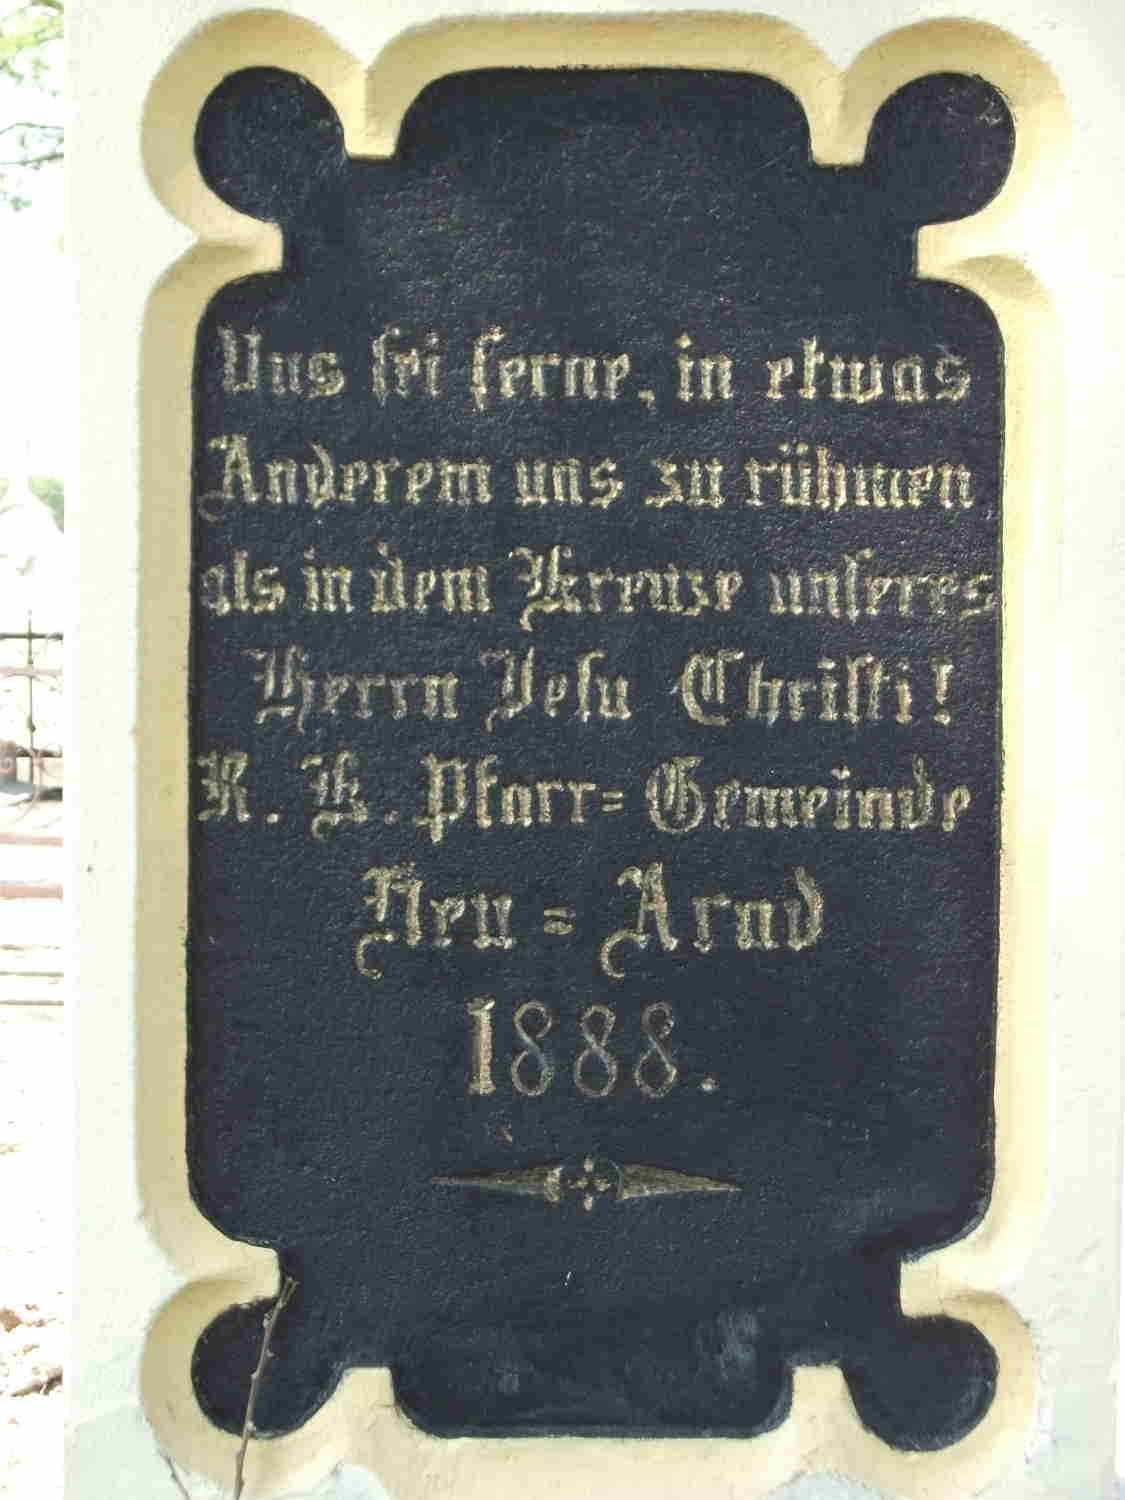 Uns sei ferne, in etwas
Anderem uns zu rühmen
als in dem Kreuze unseres
Herrn Jesu Christi!
R. K. Pfarr=Gemeinde
Neu=Arad
1888.